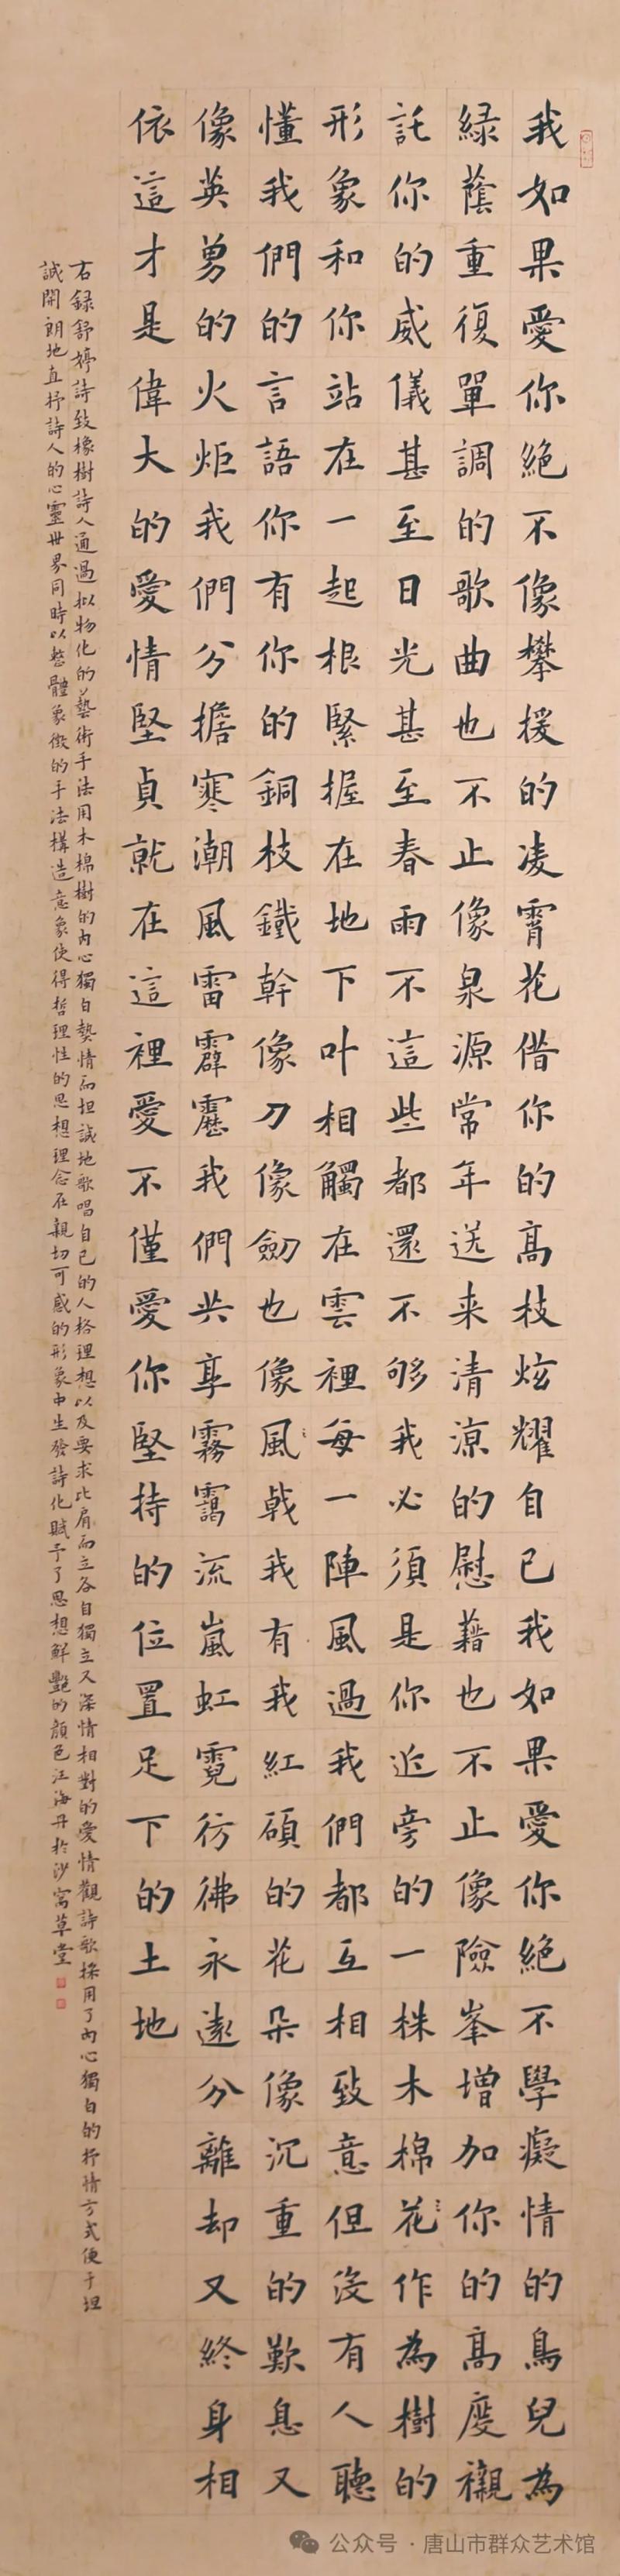 我如果愛你絕不像攀援的凌霄花借你的高枝炫耀自己我如果愛你絕不學癡情的鳥兒為
緑蔭重復單調的歌曲也不止像泉源常年送来清涼的慰藉也不止像險峯增加你的高度襯
託你的威儀甚至日光甚至春雨不這些都還不够我必須是你近旁的一株木棉花作為樹的
形象和你站在一起根緊握在地下叶相觸在雲裡每一陣風過我們都互相致意但沒有人聽
懂我們的言語你有你的銅枝鐵幹像刀像劍也像風戟我有我紅碩的花朵像沉重的歎息又
像英勇的火炬我們分擔寒潮風雷霹靂我們共享霧靄流嵐虹霓彷彿永遠分離却又終身相
依這才是偉大的愛情堅貞就在這裡愛不僅愛你堅持的位置足下的土地
右録舒婷詩致橡樹詩人通過拟物化的藝術手法用木棉樹的内心獨白熱情而坦誠地歌唱自己的人格理想以及要求比肩而立各自獨立又深情相對的愛情觀詩歌採用了内心獨白的抒情方式便于坦
誠開朗地直抒詩人的心靈世界同時以整體象徵的手法構造意象使得哲理性的思想理念在親切可感的形象中生發詩化賦予了思想鮮艷的顏色汪海丹於沙窩草堂
公众号·唐山市群众艺术馆